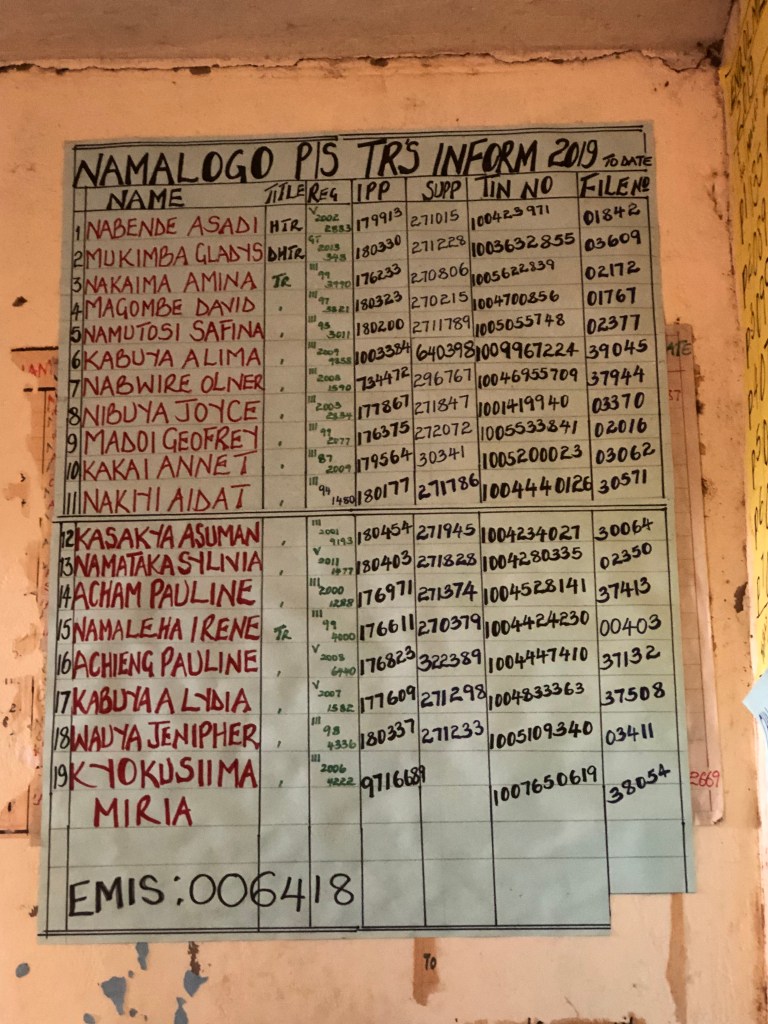 NAMALOGO P/S TR'S INFORM 2019 TO DATE
NAME TITLE REG IPP SUPP TIN NO FILE NO
1 NABENDE ASADI HTR V 2002 2533 179913 271015 100423971 01842
2 MUKIMBA GLADYS DHTR GT 2013 348 180330 271228 1003632855 03609
3 NAKAIMA AMINA TR III 99 176233 270806 1005622839 02172
4 MAGOMBE DAVID " III 97 180323 270215 1004700856 01767
5 NAMUTOSI SAFINA " III 93 3011 180200 2711789 1005055748 02377
6 KABUYA ALIMA " III 2009 1003384 640398 1009967224 39045
7 NABWIRE OLIVER " III 734472 296767 10046955709 37944
8 NIBUYA JOYCE " III 2003 177867 271847 1001419940 03370
9 MADOI GEOFREY " III 176375 272072 1005533841 02016
10 KAKAI ANNET " III 87 2009 179564 30341 1005200023 03062
11 NAKHI AIDAT " III 94 1450 180177 271786 1004440126 30571
12 KASAKYA ASUMAN " III 2001 9193 180454 271945 1004234027 30064
13 NAMATAKA SYLIVIA " V 2011 1477 180403 271828 1004280335 02350
14 ACHAM PAULINE " III 2000 1288 176971 271374 1004528141 37413
15 NAMALEHA IRENE TR III 99 4000 176611 270379 1004424230 00403
16 ACHIENG PAULINE " V 2003 6940 176823 322389 1004447410 37132
17 KABUYA A LYDIA " V 2007 1582 177609 271298 1004833363 37508
18 WAUYA JENIPHER " III 98 4336 180337 271233 1005109340 03411
19 KYOKUSIIMA " III 2006 4222 9716689 1007650619 38054
MIRIA
EMIS: 006418
2669
TO